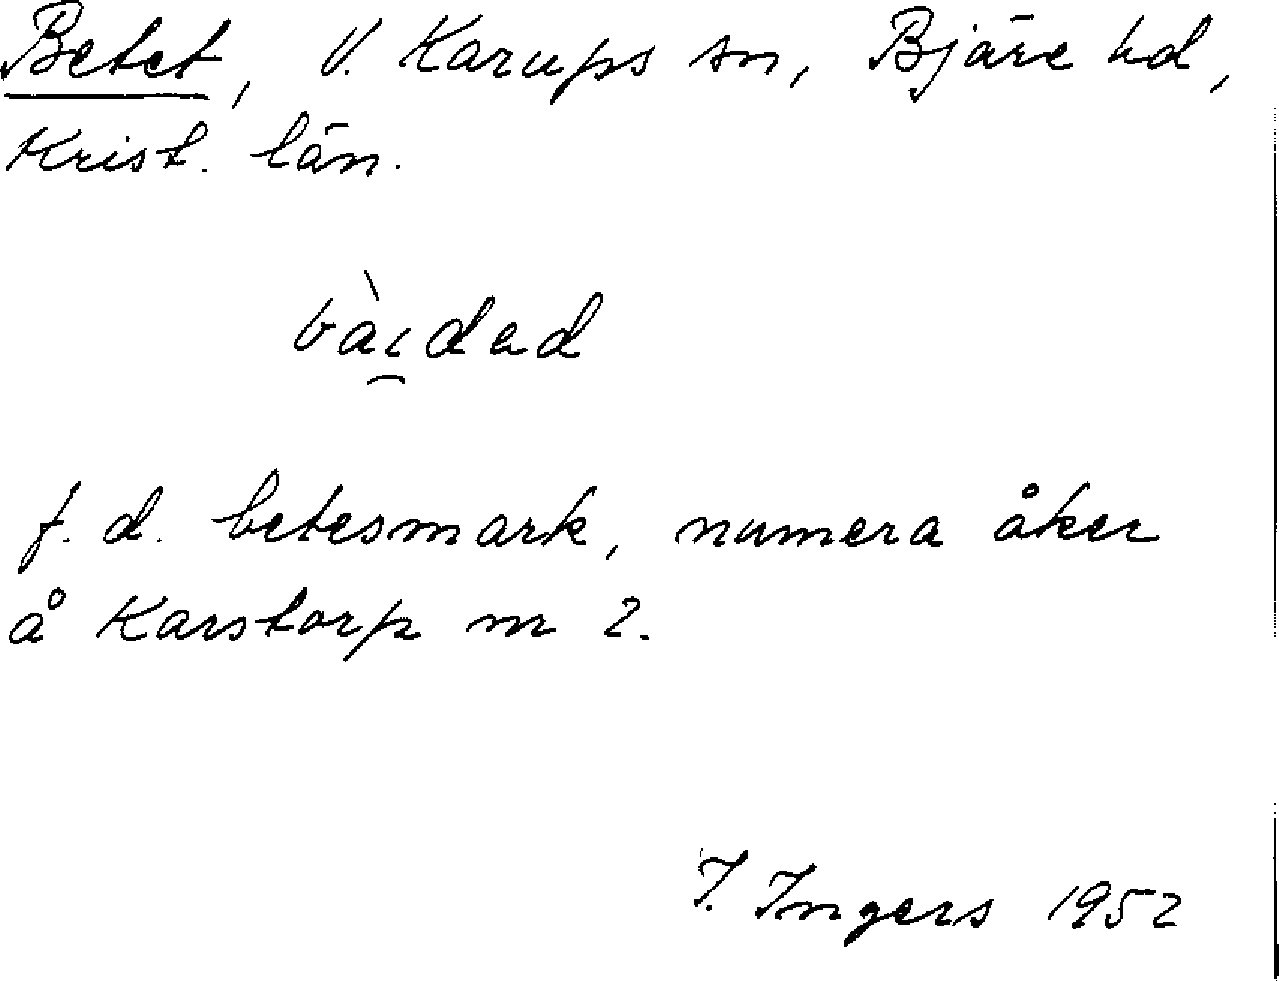 Betet, V. Karups sn, Bjäre hd,
Krist. län.
bàı̯dad
f. d. betesmark, numera åker
å Karstorp nr 2.
I. Ingers 1952